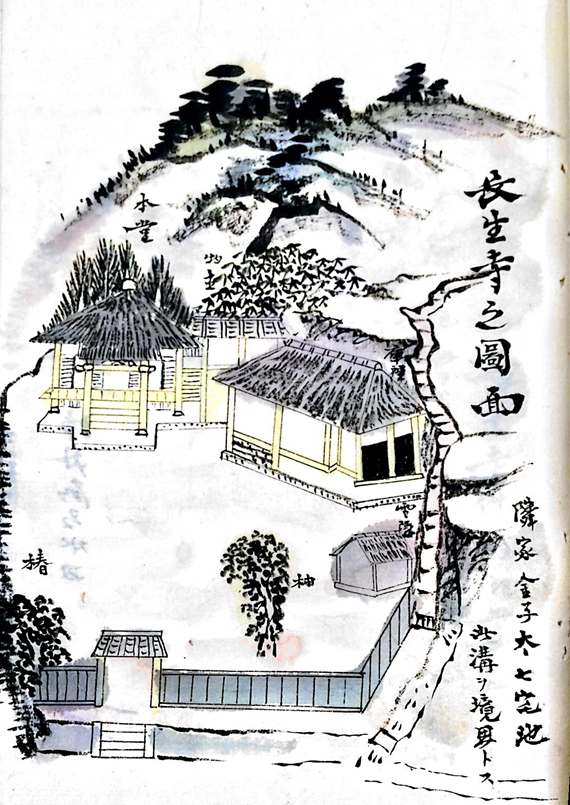 長生寺之圖面
隣家金子太七宅地
此溝ヲ境界トス
本堂
庫裡
雪隠
柚
椿